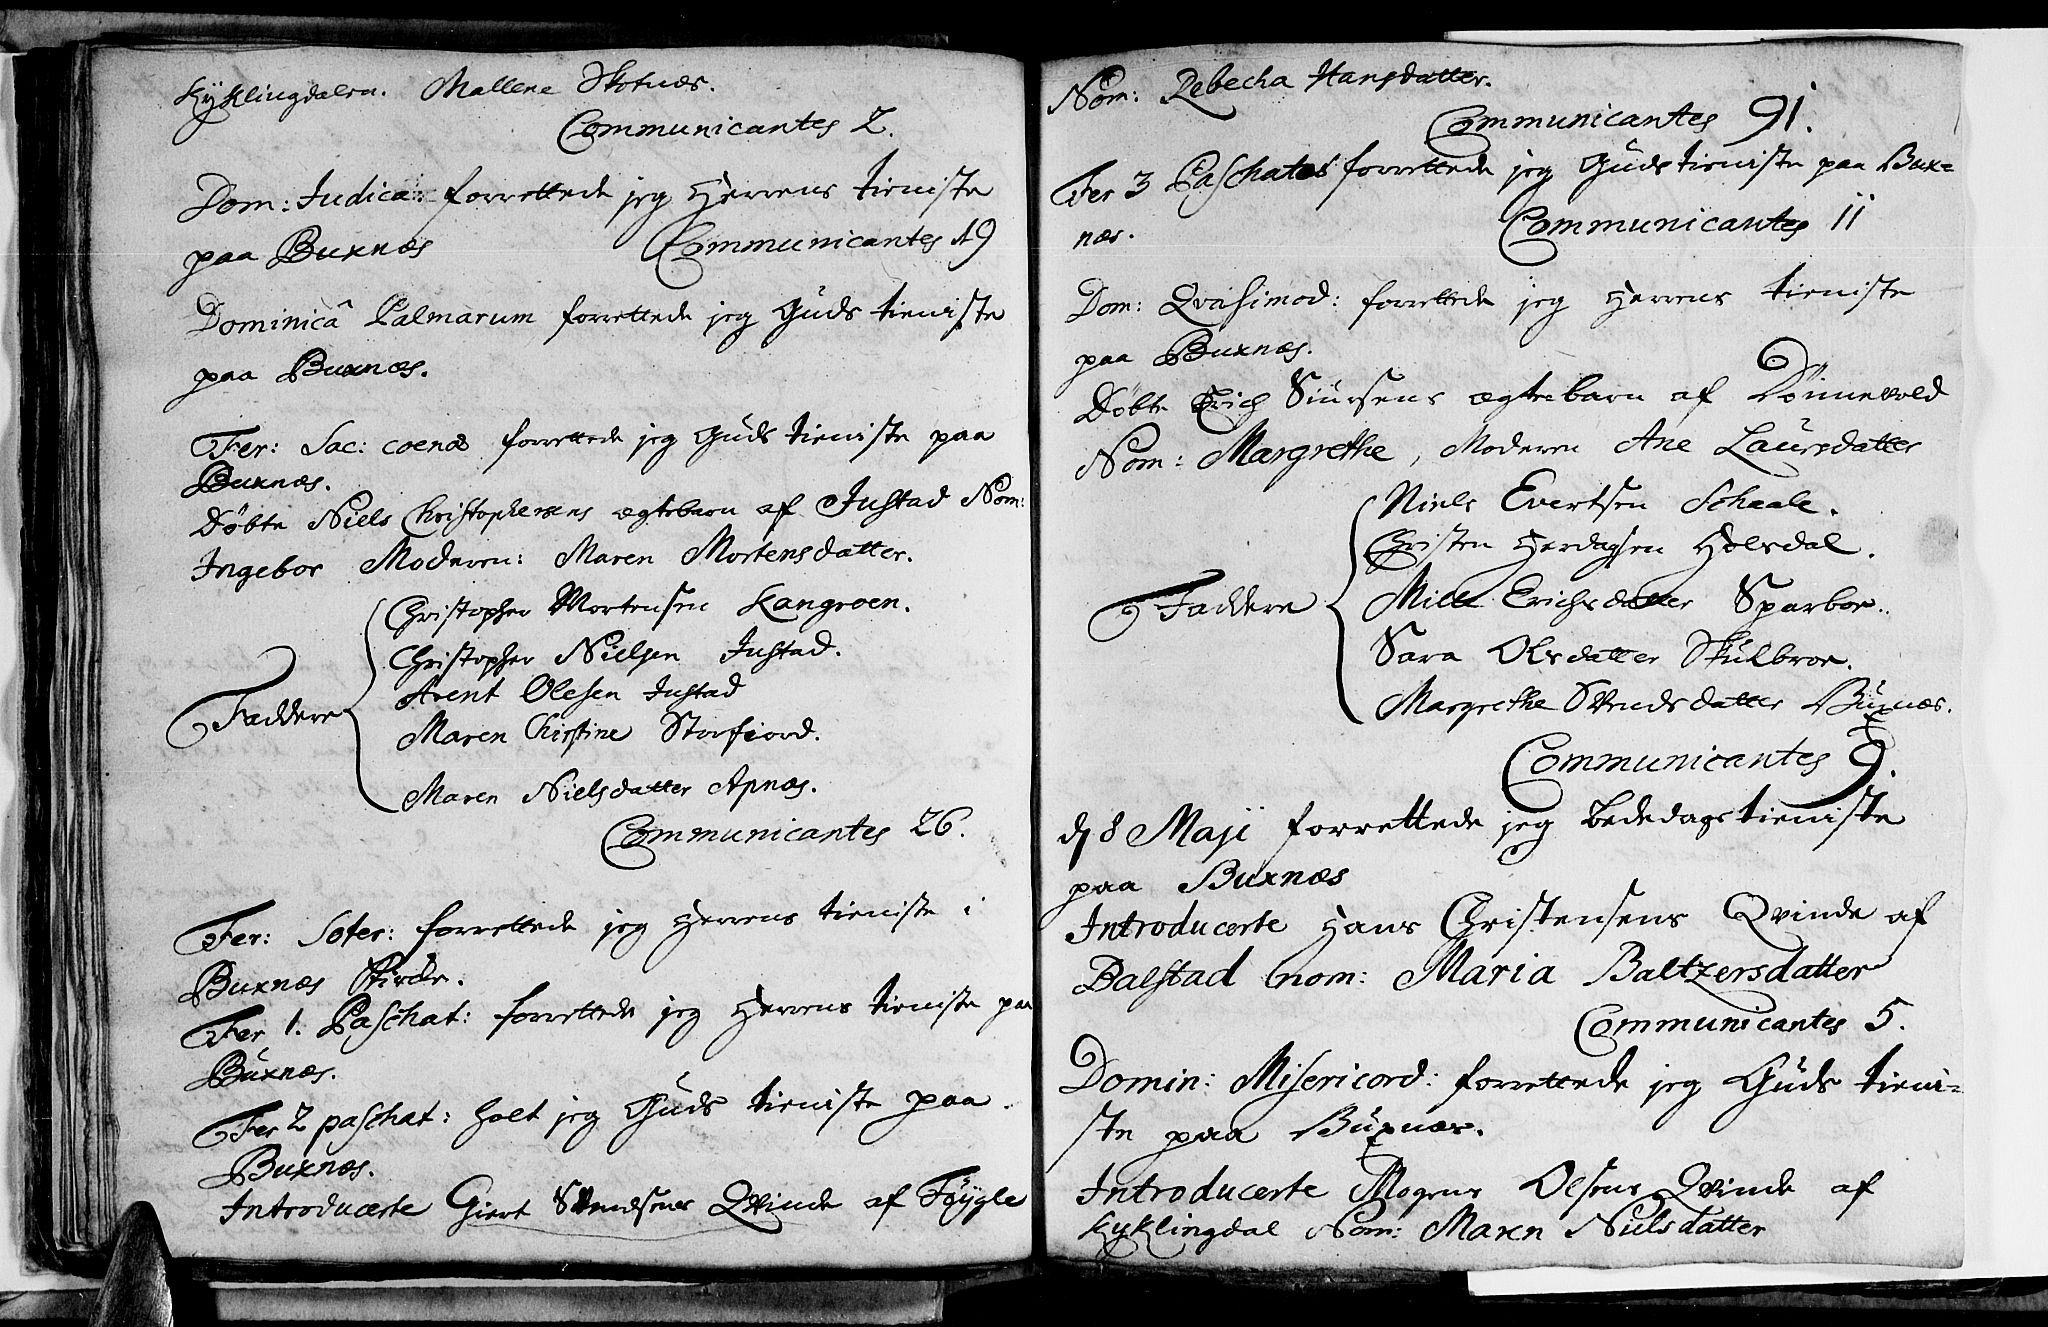 Kyklingdalen. Mallene Skotnæs.
Communicantes 2.
Dom: Judica: forrettede jeg Herrens tieniste
paa Buxnæs Communicantes 19
Dominicâ Palmarum forrettede jeg Guds tieniste
paa Buxnæs.
Fer: Sac: coenæ forrettede jeg Guds tieniste paa
Buxnæs.
Døbte Niels Christophersens ægtebarn af Justad Nom:
Ingebor Moderen: Maren Mortensdatter.
Christopher Mortensen Kangroen.
Christopher Nielsen Justad.
Arent Olesen Justad
Faddere
Maren Chirstine Storfiord.
Maren Nielsdatter Apnæs.
Communicantes 26.
Fer: Soter: forrettede jeg Herrens tieniste i
Buxnæs Kirche.
Fer 1. Paschat: forrettede jeg Herrens tieniste paa
Buxnæs.
Fer 2 paschat: holt jeg Guds tieniste paa
Buxnæs.
Introducerte Giert Svendsens Qvinde af Føygle
Nom: Rebecha Hansdatter.
Communicantes 91.
Fer 3 Paschates forrettede jeg Guds tieniste paa Bux=
næs. Communicantes 11
Dom: Qvasimod: forrettede jeg Herrens tieniste
paa Buxnæs.
Døbte Erich Siursens ægtebarn af Dønnevold
Nom: Margrethe, Moderen Ane Laursdatter
Niels Evertsen Schaale.
Christen Herdagsen Holsdal.
Faddere Mille Erichsdatter Sparboe.
Sara Olsdatter Skulbroe.
Margrethe Svendsdatter Buxnæs.
Communicantes 9.
d 8 Maji forrettede jeg bededags tieniste
paa Buxnæs
Introducerte Hans Christensens Qvinde af
Balstad nom: Maria Baltzersdatter
Communicantes 5.
Domin: Misericord: forrettede jeg Guds tieni=
ste paa Buxnæs.
Introducerte Mogens Olsens Qvinde af
Kyklingdal Nom: Maren Nielsdatter